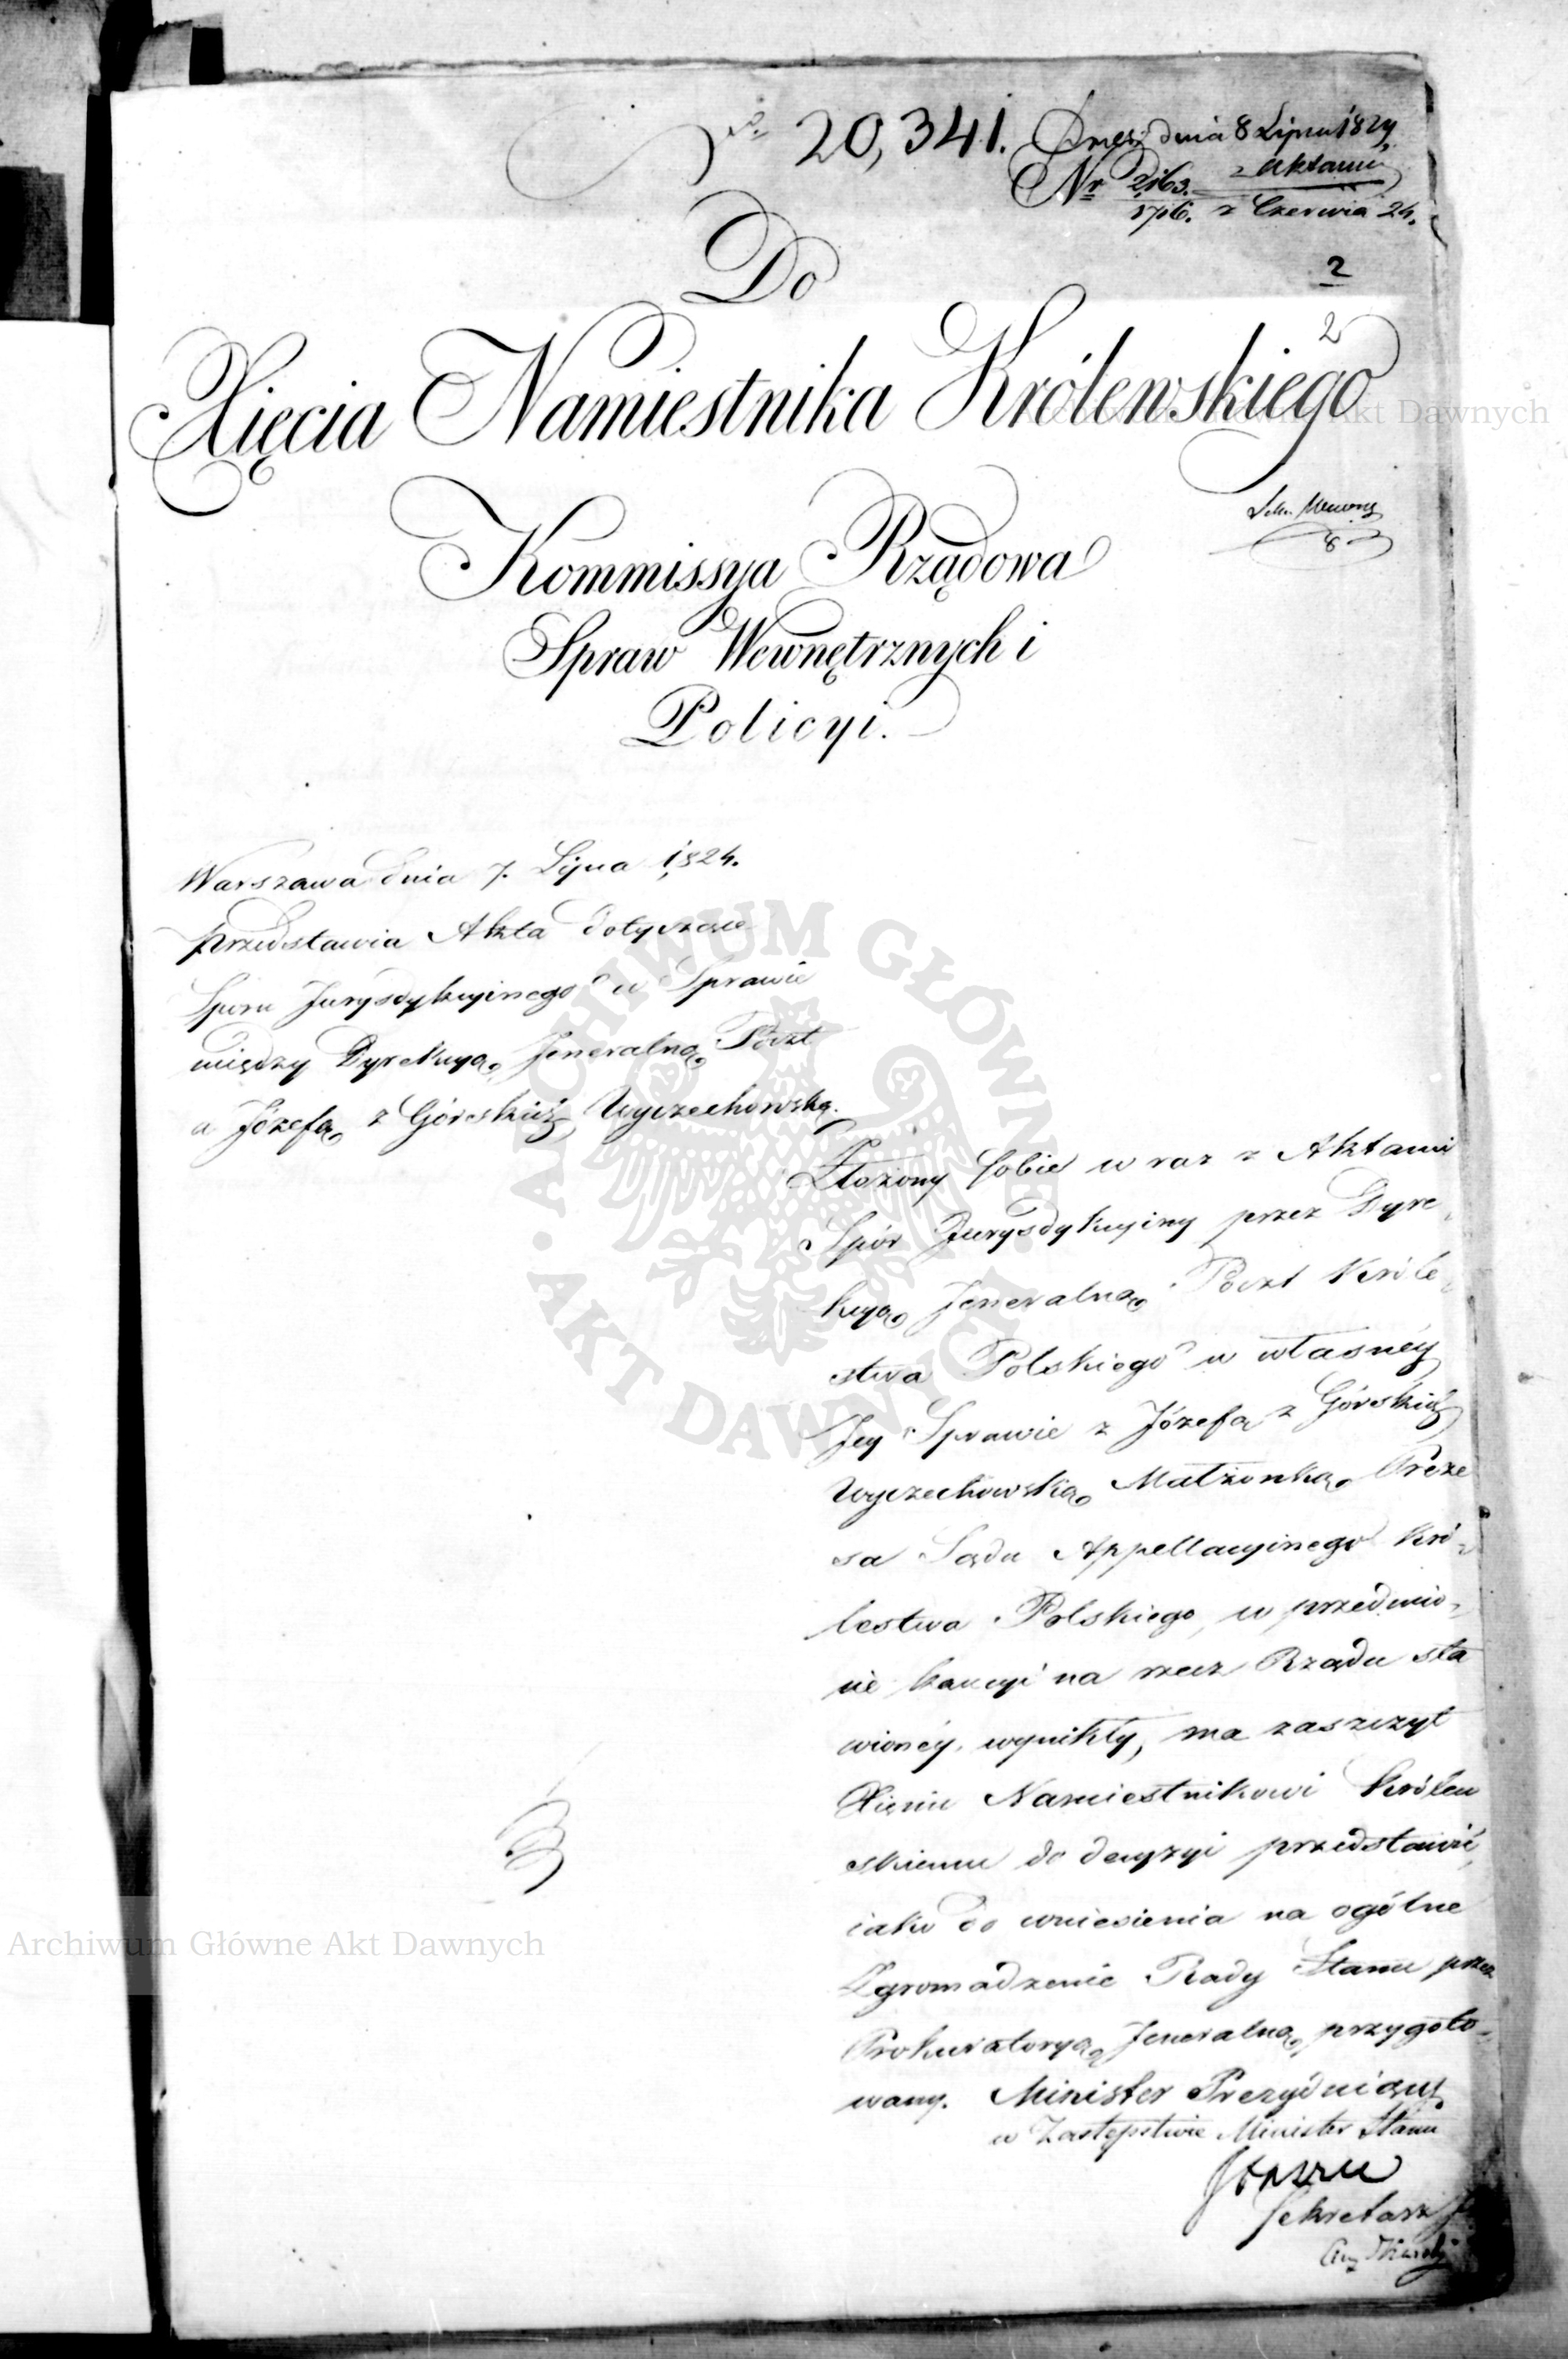 No 20,341. Prez: dnia 8 Lipca 1824
z Aktami
Nr 2163.
1716. z Czerwca 24.
2
Do
2
Xięcia Namiestnika Królewskiego
Kommissya Rządowa
Spraw Wewnętrznych i
Policyi.
Warszawa dnia 7. Lipca 1824.
przedstawia Akta dotyczące
Sporu Jurysdykcyinego w Sprawie
między Dyrekcyą Jeneralną Poczt
a Józefą z Górskich Wyczechowską.
Złożony sobie w raz z Aktami
Spór Jurysdykcyiny przez Dyre-
kcyą Jeneralną Poczt Króle-
stwa Polskiego w własney
Jey Sprawie z Józefą z Górskich
Wyczechowską Małżonką Preze
sa Sądu Appellacyinego Kró-
lestwa Polskiego, w przedmio-
cie kaucyi na rzecz Rządu sta
wioney, wynikły, ma zaszczyt
Xięciu Namiestnikowi Królew
skiemu do decyzyi przedstawić,
iako do wniesienia na ogólne
Zgromadzenie Rady Stanu przez
Prokuratoryą Jeneralną przygoto-
wany. Minister Prezyduiący
w Zastępstwie Minister Stanu
Sekretarz
Archiwum Główne Akt Dawnych
ARCHIWUM GŁÓWNE AKT DAWNYCH
Archiwum Główne Akt Dawnych